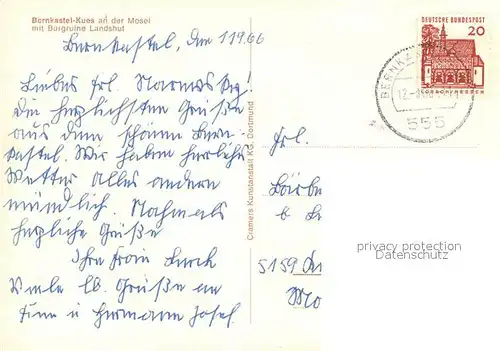 Bernkastel-Kues an der Mosel
mit Burgruine Landshut
Bernkastel, den 11.9.66
Liebes Frl.
Die herzlichsten Grüße
aus dem schönen Bern-
kastel. Wir haben herrliches
Wetter. Alles andere
mündlich. Nochmals
herzliche Grüße
Ihre Frau
Viele lb. Grüße an
und Hermann Josef
Cramers Kunstanstalt KG, Dortmund
DEUTSCHE BUNDESPOST
20
LORSCH/HESSEN
BERNKA
12.-9.66
555
Frl.
Bärbe
5159
privacy protection
Datenschutz